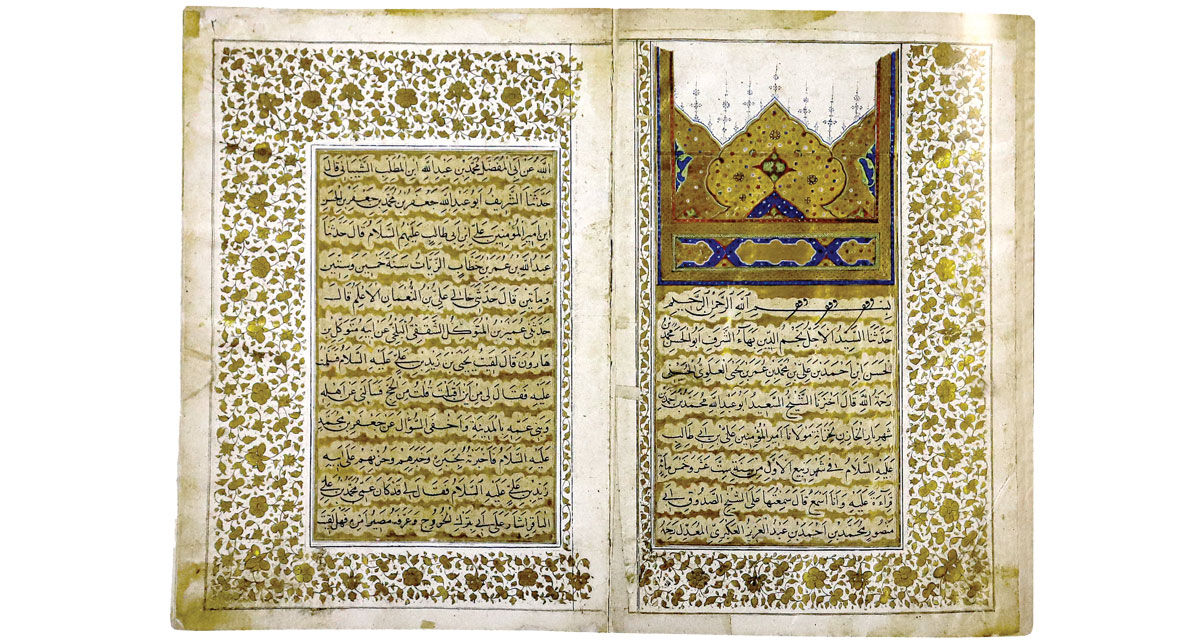 بسم الله الرحمن الرحيم
حدثنا السيد الاجل نجم الدين بهاء الشرف ابو الحسن محمد بن
الحسن ابن احمد بن علي بن محمد بن عمر بن يحيى العلوي الحسيني
رحمة الله قال اخبرنا الشيخ السعيد ابو عبد الله محمد بن احمد بن
شهريار الخازن لخزانة مولانا امير المؤمنين علي بن ابي طالب
عليه السلام في شهر ربيع الاول من سنة ست عشر وخمس مأة
قرأءة عليه وانا اسمع قال سمعتها على الشيخ الصدوق ابي
منصور محمد بن احمد بن عبد العزيز العكبري المعدل رحمه
الله عن ابي المفضل محمد بن عبد الله ابن المطلب الشيباني قال
حدثنا الشريف ابو عبد الله جعفر بن محمد بن جعفر بن الحسن
ابن امير المؤمنين علي ابن ابي طالب عليهم السلام قال حدثنا
عبد الله بن عمر بن خطاب الزيات سنة خمس وستين
ومأتين قال حدثني خالي علي بن النعمان الاعلم قال
حدثني عمير بن المتوكل الثقفي البلخي عن ابيه متوكل بن
هارون قال لقيت يحيى بن زيد بن علي عليه السلام فسلمت
عليه فقال لي من اين اقبلت قلت من الحج فسألني عن اهله
وبني عمه بالمدينة واحفى السؤال عن جعفر بن محمد
عليه السلام فاخبرته بخبره وخبرهم وحزنهم على ابيه
زيد بن علي عليه السلام فقال لي قد كان عمي محمد بن علي
الباقر اشار على ابي بترك الخروج وعرفه مصير امره فهل لقيت